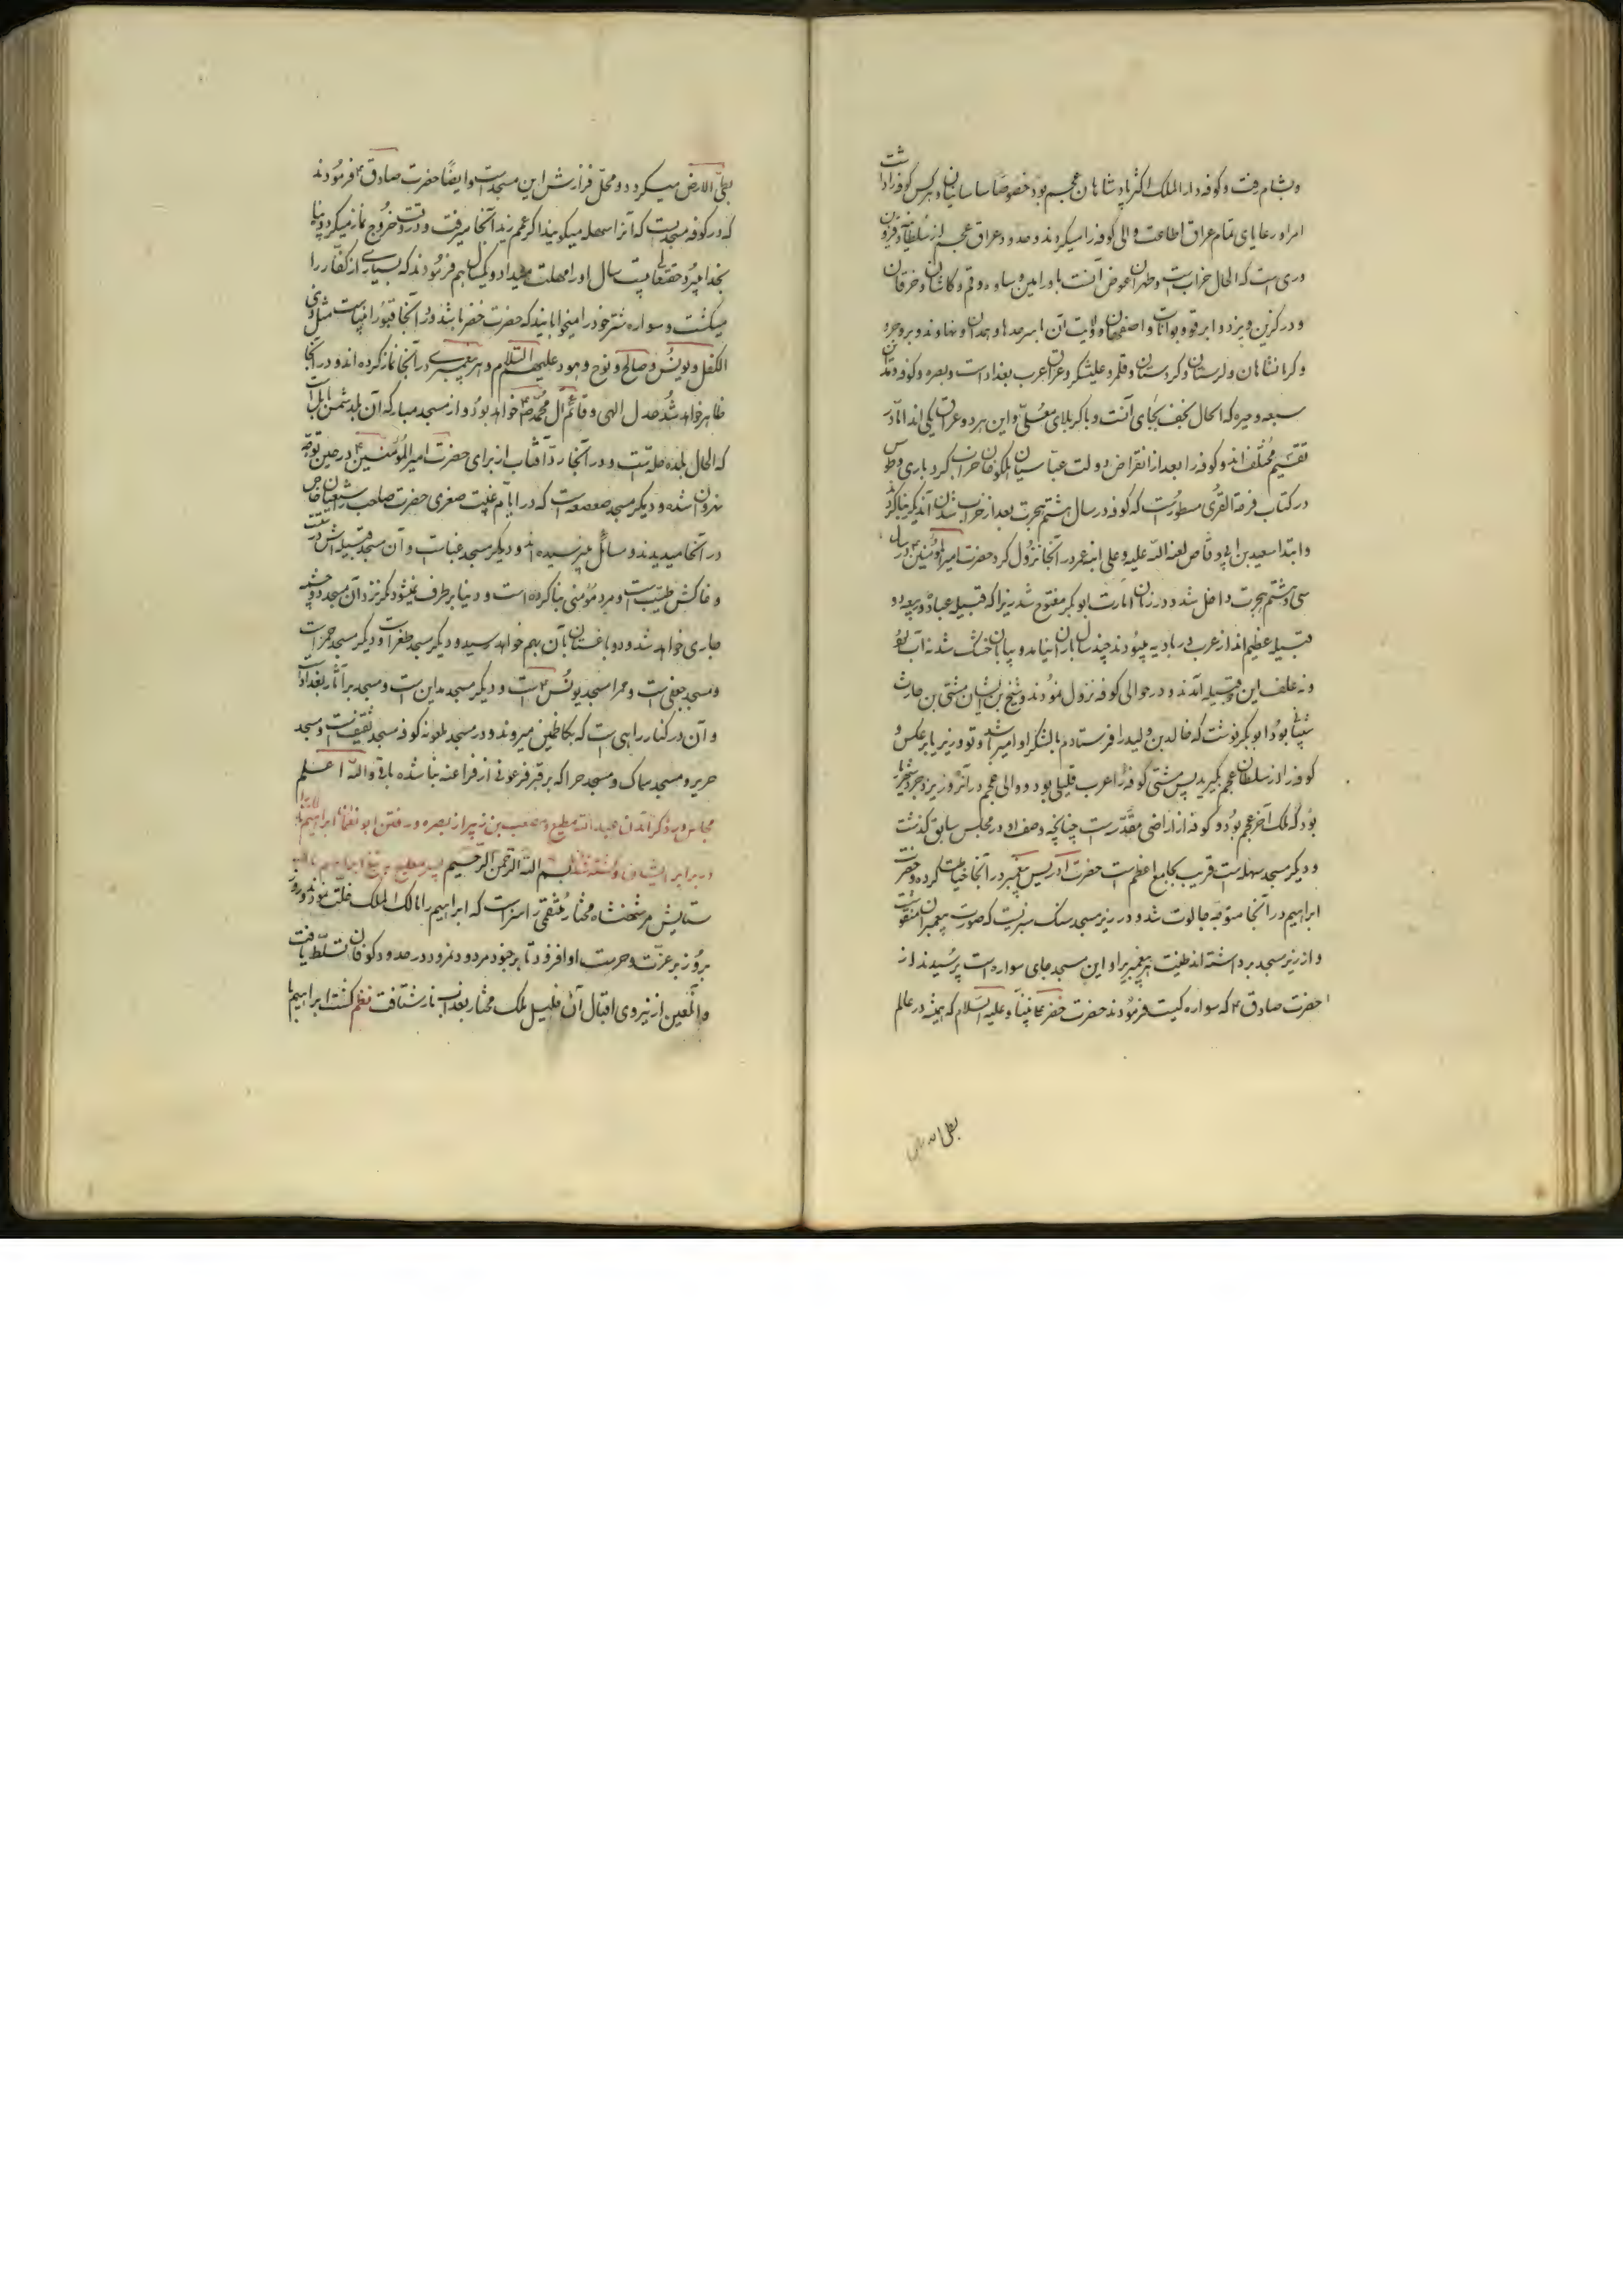 و بشام رفت و کوفه دار الملک اکثر پادشاهان عجم بود خصوصا ساسانیان و هر کس کوفه را داشت
امرا و رعایای تمام عراق اطاعت والی کوفه را میکردند و حدود عراق عجم از سلطانیه و قزوین
و ری است که الحال خراب است و طهران عوض آنست با ورامین و ساوه و قم و کاشان و خرقان
و درکزین و یزد و ابرقوه و بوانات و اصفهان و ولایت آن با سرحدها و همدان و نهاوند و بروجرد
و کرمانشاهان و لرستان و کردستان و قلمرو علیشکر و عراق عرب بغداد است و بصره و کوفه و مداین
سبعه و حیره که الحال نجف بجای آنست و با کربلای معلی و این هر دو عراق یکی اند اما در
تقسیم مختلف اند و کوفه را بعد از انقراض دولت عباسیان هلاکو خان خراب کرد باری و طوس
در کتاب فرحة القری مسطور است که کوفه در سال هشتم هجرت بعد از خراب شدن آن دیگر بنا کردند
و ابتدا سعید بن ابی وقاص لعنه الله علیه و علی ابنه عمر در آنجا نزول کرد حضرت امیر المؤمنین ع در سال
سی و هشتم هجرت داخل شد و در زمان امارت ابو بکر مفتوح شد زیرا که قبیله عباده و ربیعه دو
قبیله عظیم اند از عرب در بادیه میبودند چند سال باران نیامد و بیابان خشک شد نه آب بود
و نه علف این دو قبیله آمدند و در حوالی کوفه نزول نمودند و شیخ بن ایشان مثنی بن حارث
شیبانی بود ابو بکر نوشت که خالد بن ولید را فرستادم با لشکر او امیر باشد و تو وزیر یا بر عکس و
کوفه را از سلطان عجم بگیرید پس مثنی کوفه را اعرب قلیلی بود و والی عجم در آنروز یزدجرد شهریار
بود که ملک آخر عجم بود و کوفه از اراضی مقدّس است چنانچه وصف او در مجلس سابق گذشت
و دیگر مسجد سهله است قریب بجامع اعظم است حضرت ادریس پیغمبر در آنجا خیاطت کرده و حضرت
ابراهیم در آنجا متوجه جالوت شد و در زیر مسجد سنک سبزیست که صورت پیغمبران منقوش است
و از زیر مسجد برداشته اند طینت هر پیغمبر را و این مسجد جای سواره است پرسیدند از
حضرت صادق ع که سواره کیست فرمودند حضرت خضر علی نبینا و علیه السلام که همیشه در عالم
بطی الارض
بطی الارض میکردد و محل قرارش این مسجد است و ایضا حضرت صادق ع فرمودند
که در کوفه مسجدیست که آنرا سهله میکویند اکر عمم زید آنجا میرفت و در وقت خروج نماز میکرد و پناه
بخدا میبرد حقتعالی بیست سال او را مهلت میداد و یکسال هم فرمودند که بسیاری از کفار را
میکشت و سواره شتر خود را میخواباند که حضرت خضر باشد و در آنجا قبور انبیاست مثل ذی
الکفل و یونس و صالح و نوح و هود علیهم السلام و هر پیغمبری در آنجا نماز کرده اند و در آنجا
ظاهر خواهد شد عدل الهی و قائم آل محمد ص خواهد بود و از مسجد مبارکه آن بلد شمس بابل است
که الحال بلده حله است و در آنجا رد آفتاب از برای حضرت امیر المؤمنین ع در حین توجه
نهروان شده و دیکر مسجد صعصعه است که در ایام غیبت صغری حضرت صاحب را شیعیان خاص
در آنجا میدیدند و مسائل میپرسیده اند و دیکر مسجد غنیاست و آن مسجد قبله اش درست است
و خاکش طیب است و مرد مؤمنی بنا کرده است و دنیا بر طرف نمیشود مکر نزد آن مسجد دو چشمه
جاری خواهد شد و دو باغستان بآن بهم خواهد رسید و دیکر مسجد ظفر است و دیکر مسجد حمراست
و مسجد جعفی است و حمرا مسجد یونس ع است و دیکر مسجد مداین است و مسجد براثا در بغداد است
و آن در کنار راهی است که بکاظمین میروند و در مسجد ملعونه کوفه مسجد ثقیف است و مسجد
حریر و مسجد سماک و مسجد حرا که بر قبر فرعونی از فراعنه بنا شده باقی والله اعلم
مجلس در ذکر آمدن عبد الله مطیع و مصعب بن زبیر از بصره و رفتن ابراهیم
در برابر ایشان و کشته شدن بسم الله الرحمن الرحیم پسر مطیع بر تیغ ابراهیم
ستایش مر شهنشاه مختار منتقمی را سزاست که ابراهیم را مالک الملک خلت نمود و روز
بروز بر عزت و حرمت او افزود تا بر جنود مردود نمرود در حدود کوفان تسلط یافت
و المعین از نیروی اقبال آن خلیل ملک مختار بعذاب نار شتافت نظم کشت ابراهیم با